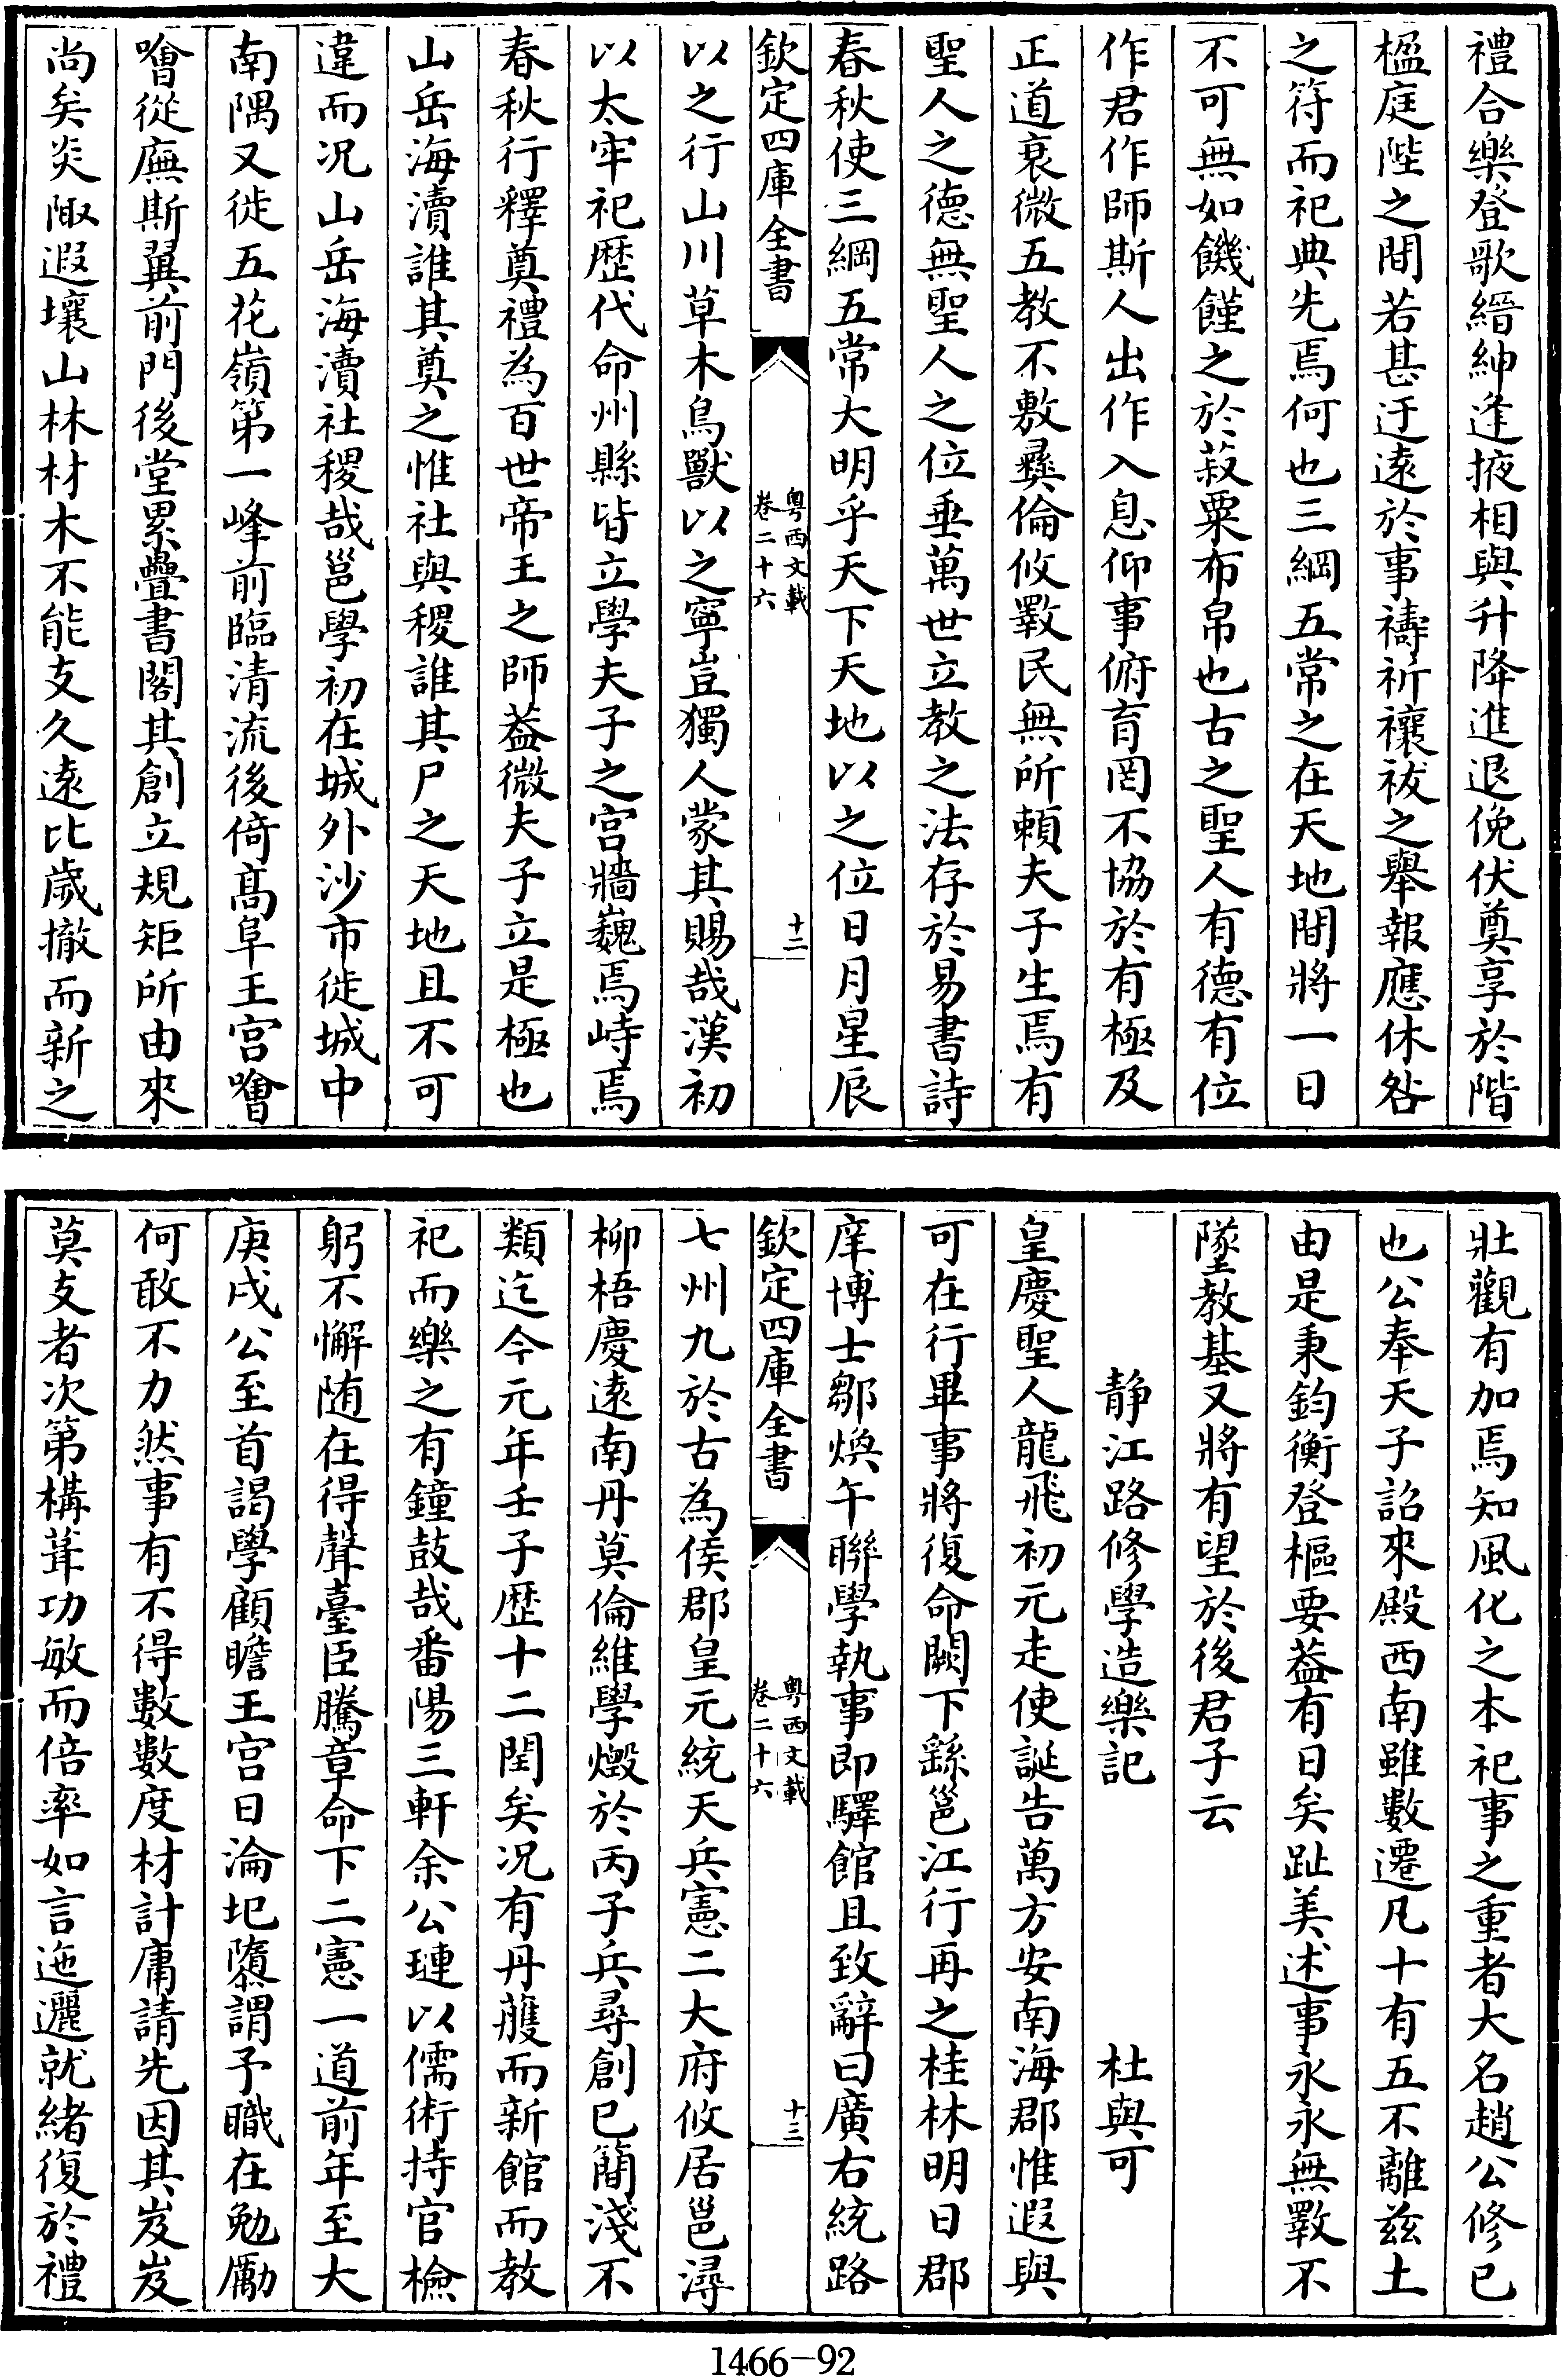 禮合樂登歌縉紳逢掖相與升降進退俛伏奠享於階
楹庭陛之間若甚迂遠於事禱祈禳祓之舉報應休咎
之符而祀典先焉何也三綱五常之在天地間將一日
不可無如饑饉之於菽粟布帛也古之聖人有德有位
作君作師斯人出作入息仰事俯育罔不協於有極及
正道衰微五教不敷彞倫攸斁民無所賴夫子生焉有
聖人之德無聖人之位垂萬世立教之法存於易書詩
春秋使三綱五常大明乎天下天地以之位日月星辰
欽定四庫全書 粤西文載 卷二十六 十二
以之行山川草木鳥獸以之寧豈獨人蒙其賜哉漢初
以太牢祀歴代命州縣皆立學夫子之宫牆巍焉峙焉
春秋行釋奠禮為百世帝王之師葢微夫子立是極也
山岳海瀆誰其奠之惟社與稷誰其尸之天地且不可
違而况山岳海瀆社稷哉邕學初在城外沙市徙城中
南隅又徙五花嶺第一峰前臨清流後倚髙阜王宫噲
噲從廡斯翼前門後堂累疊書閣其創立規矩所由來
尚矣炎陬遐壤山林材木不能支久遠比歲撤而新之
壯觀有加焉知風化之本祀事之重者大名趙公修已
也公奉天子詔來殿西南雖數遷凡十有五不離兹土
由是秉鈞衡登樞要葢有日矣趾美述事永永無斁不
墜教基又將有望於後君子云
静江路修學造樂記 杜與可
皇慶聖人龍飛初元走使誕告萬方安南海郡惟遐與
可在行畢事將復命闕下繇邕江行再之桂林明日郡
庠博士鄒煥午聯學執事即驛館且致辭曰廣右統路
欽定四庫全書 粤西文載 卷二十六 十三
七州九於古為侯郡皇元統天兵憲二大府攸居邕潯
柳梧慶遠南丹莫倫維學燬於丙子兵尋創已簡淺不
類迄今元年壬子歴十二閏矣况有丹雘而新館而教
祀而樂之有鐘鼓哉番陽三軒余公璉以儒術持官檢
躬不懈随在得聲臺臣騰章命下二憲一道前年至大
庚戌公至首謁學顧瞻王宫曰淪圮隳謂予職在勉勵
何敢不力然事有不得數數度材計庸請先因其岌岌
莫支者次第構葺功敏而倍率如言迤邐就緒復於禮
1466-92